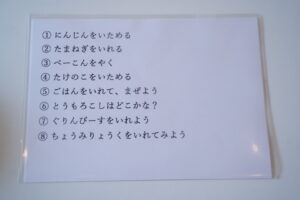 ① にんじんをいためる
② たまねぎをいれる
③ べーこんをやく
④ たけのこをいためる
⑤ ごはんをいれて、まぜよう
⑥ とうもろこしはどこかな？
⑦ ぐりんぴーすをいれよう
⑧ ちょうみりょうくをいれてみよう